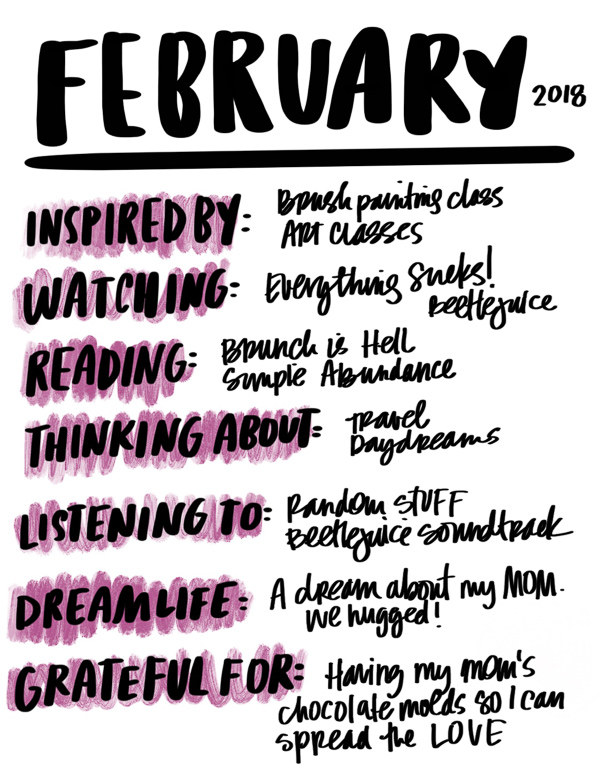 FEBRUARY 2018
INSPIRED BY: Brush painting class
ART CLASSES
WATCHING: Everything Sucks!
Beetlejuice
READING: Brunch is Hell
Simple Abundance
THINKING ABOUT: Travel
Daydreams
LISTENING TO: Random STUFF
Beetlejuice soundtrack
DREAMLIFE: A dream about my MOM.
We hugged!
GRATEFUL FOR: Having my mom's
chocolate molds so I can
spread the LOVE